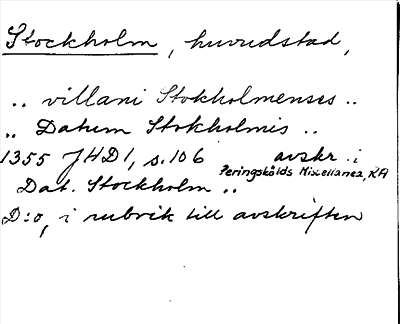 Stockholm, huvudstad,
.. villani Stokholmenses ..
.. Datum Stokholmis ..
1355 JHD1, s. 106 avskr. i
Peringskölds Miscellanea, RA
Dat. Stockholm ..
D:o, i rubrik till avskriften